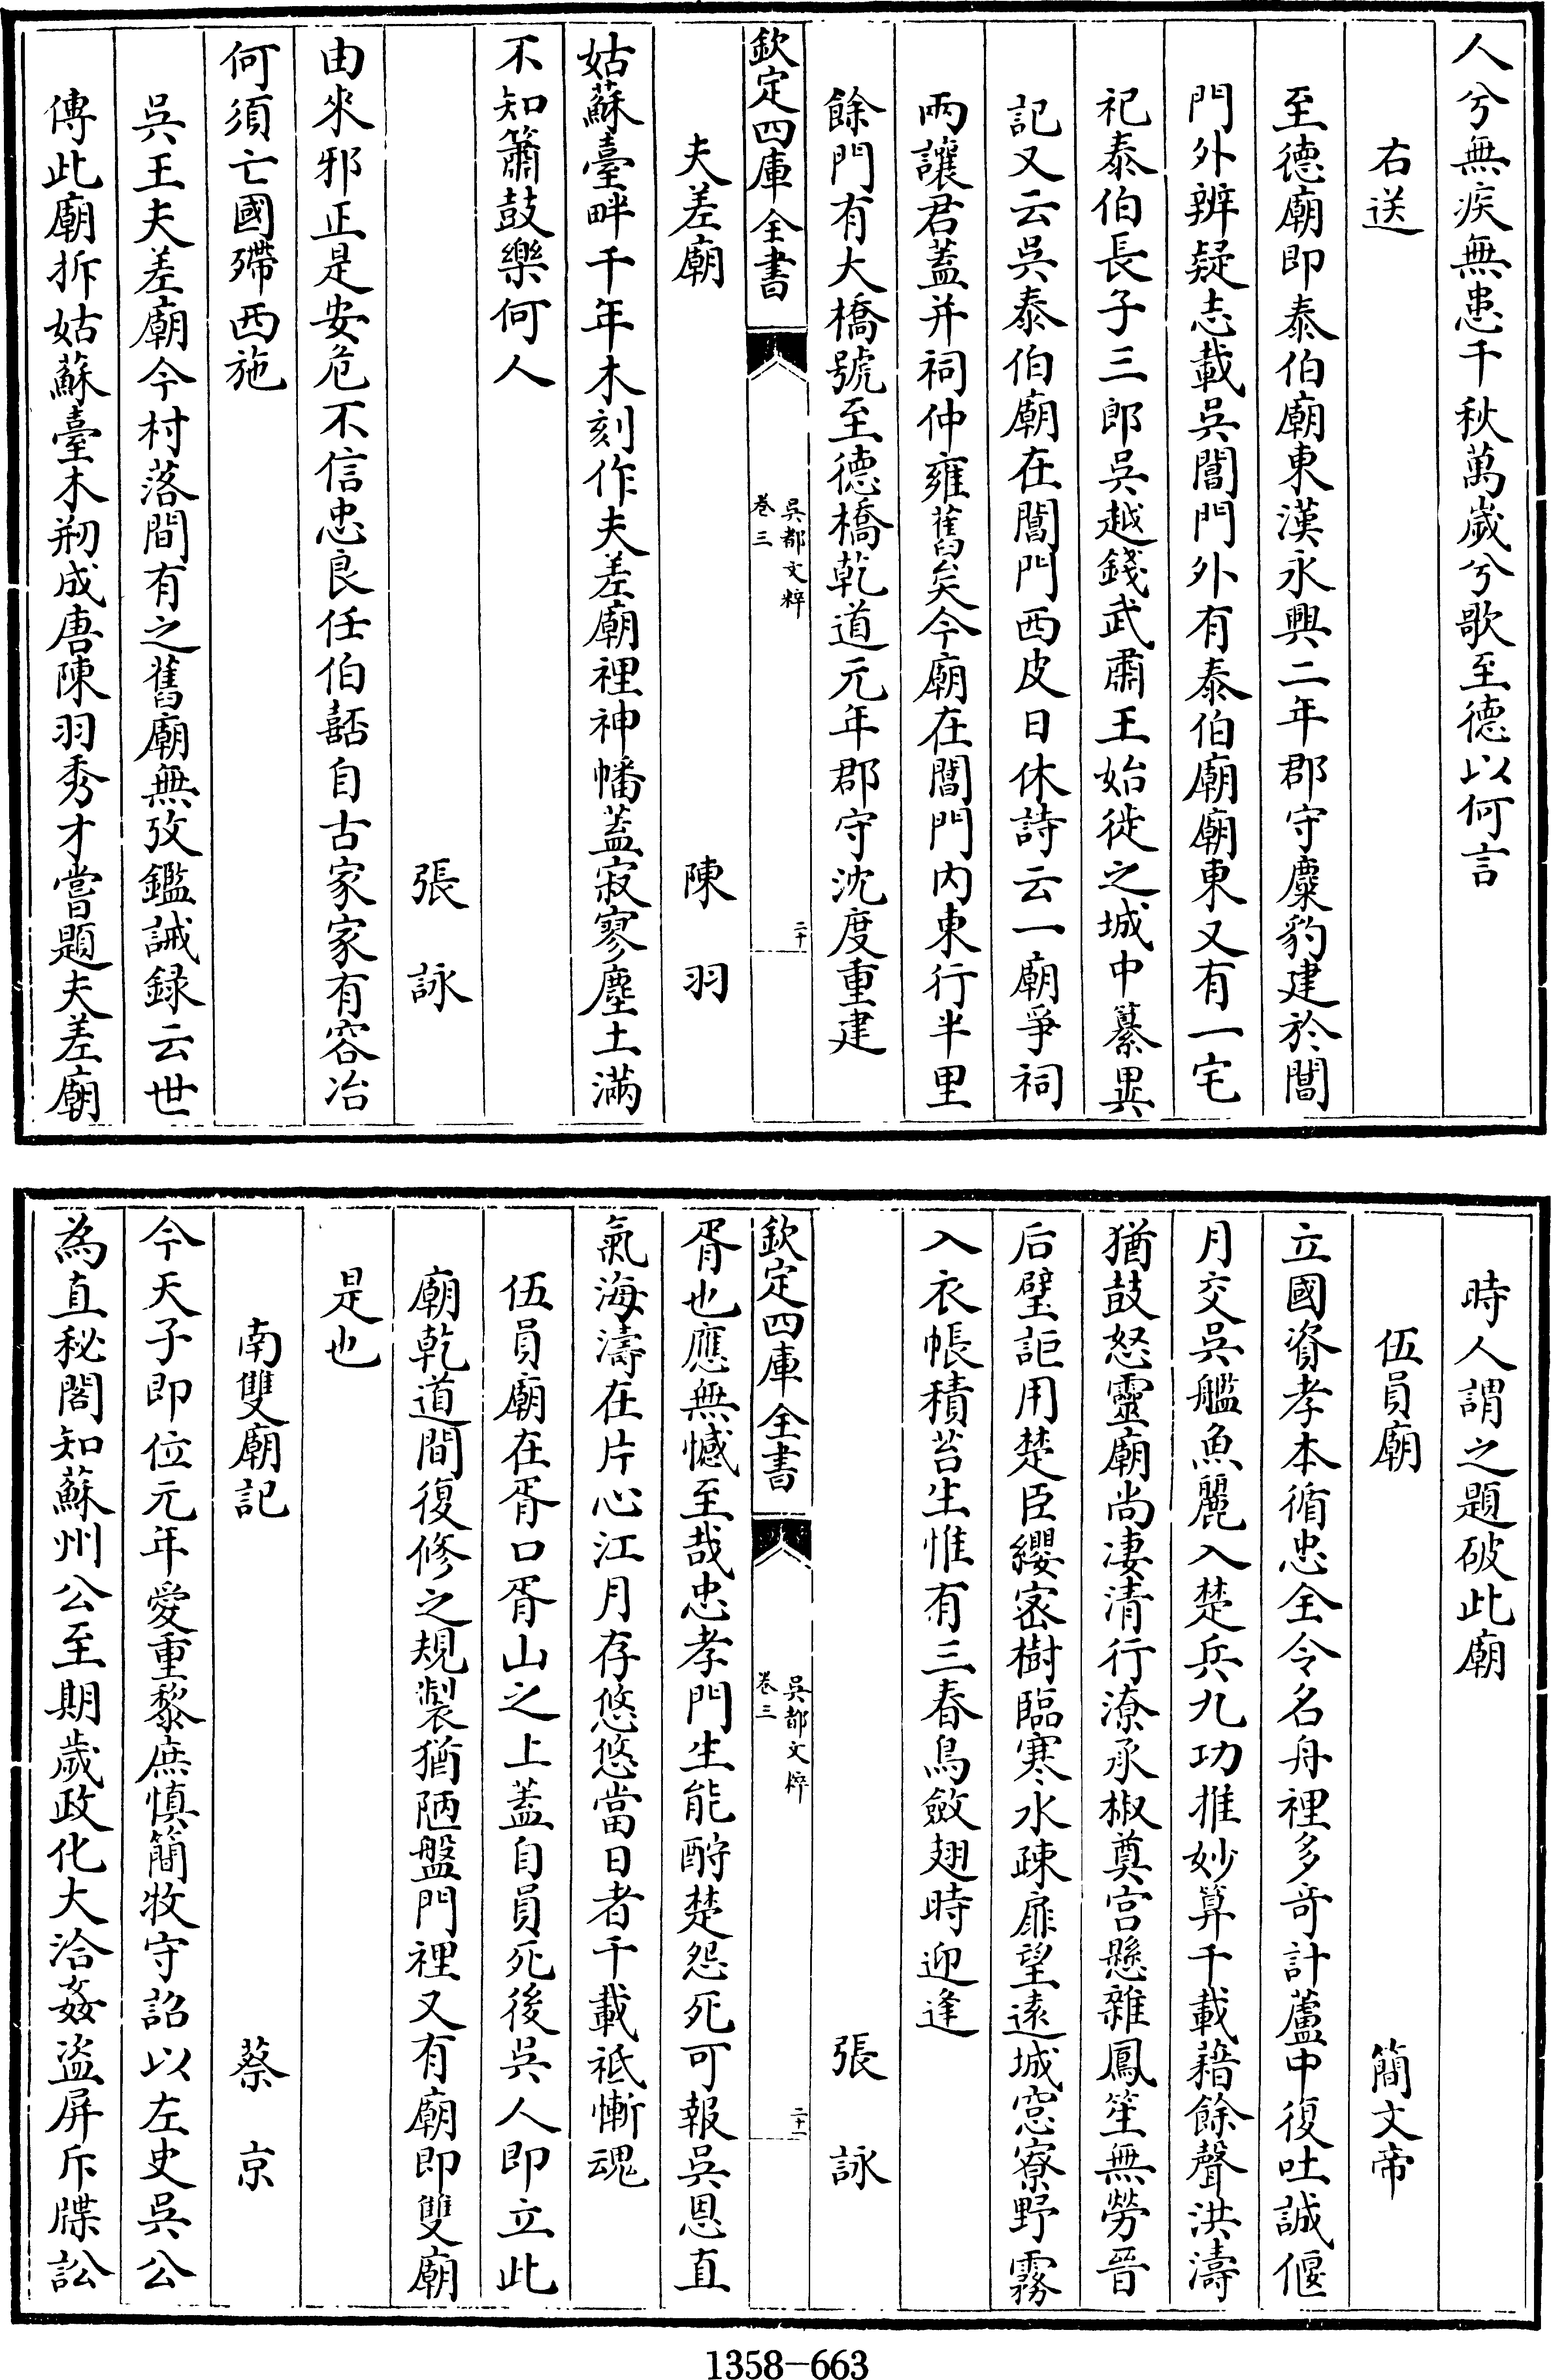 人兮無疾無患千秋萬嵗兮歌至德以何言
右送
至德廟即泰伯廟東漢永興二年郡守麋豹建於閶
門外辨疑志載吳閶門外有泰伯廟廟東又有一宅
祀泰伯長子三郎吳越錢武肅王始徙之城中纂異
記又云吳泰伯廟在閶門西皮日休詩云一廟爭祠
兩讓君蓋并祠仲雍舊矣今廟在閶門内東行半里
餘門有大橋號至德橋乾道元年郡守沈度重建
欽定四庫全書
吳都文粹
卷三
二十
夫差廟 陳羽
姑蘇臺畔千年木刻作夫差廟裡神幡蓋寂寥塵土滿
不知簫鼓樂何人
張詠
由來邪正是安危不信忠良任伯嚭自古家家有容冶
何須亡國殢西施
吳王夫差廟今村落間有之舊廟無攷鑑誡録云世
傳此廟拆姑蘇臺木剏成唐陳羽秀才嘗題夫差廟
時人謂之題破此廟
伍員廟 簡文帝
立國資孝本循忠全令名舟裡多奇計蘆中復吐誠偃
月交吳艦魚麗入楚兵九功推妙算千載藉餘聲洪濤
猶鼓怒靈廟尚凄清行潦承椒奠宫懸雜鳳笙無勞晉
后璧詎用楚臣纓宻樹臨寒水疎扉望逺城窓寮野霧
入衣帳積苔生惟有三春鳥斂翅時迎逢
張詠
欽定四庫全書
吳都文粹
卷三
二十一
胥也應無憾至哉忠孝門生能酧楚怨死可報吳恩直
氣海濤在片心江月存悠悠當日者千載祗慚魂
伍員廟在胥口胥山之上蓋自員死後吳人即立此
廟乾道間復修之規製猶陋盤門裡又有廟即雙廟
是也
南雙廟記 蔡京
今天子即位元年愛重黎庶慎簡牧守詔以左史吳公
為直秘閣知蘇州公至期歲政化大洽姦盜屏斥牒訟
1358-663